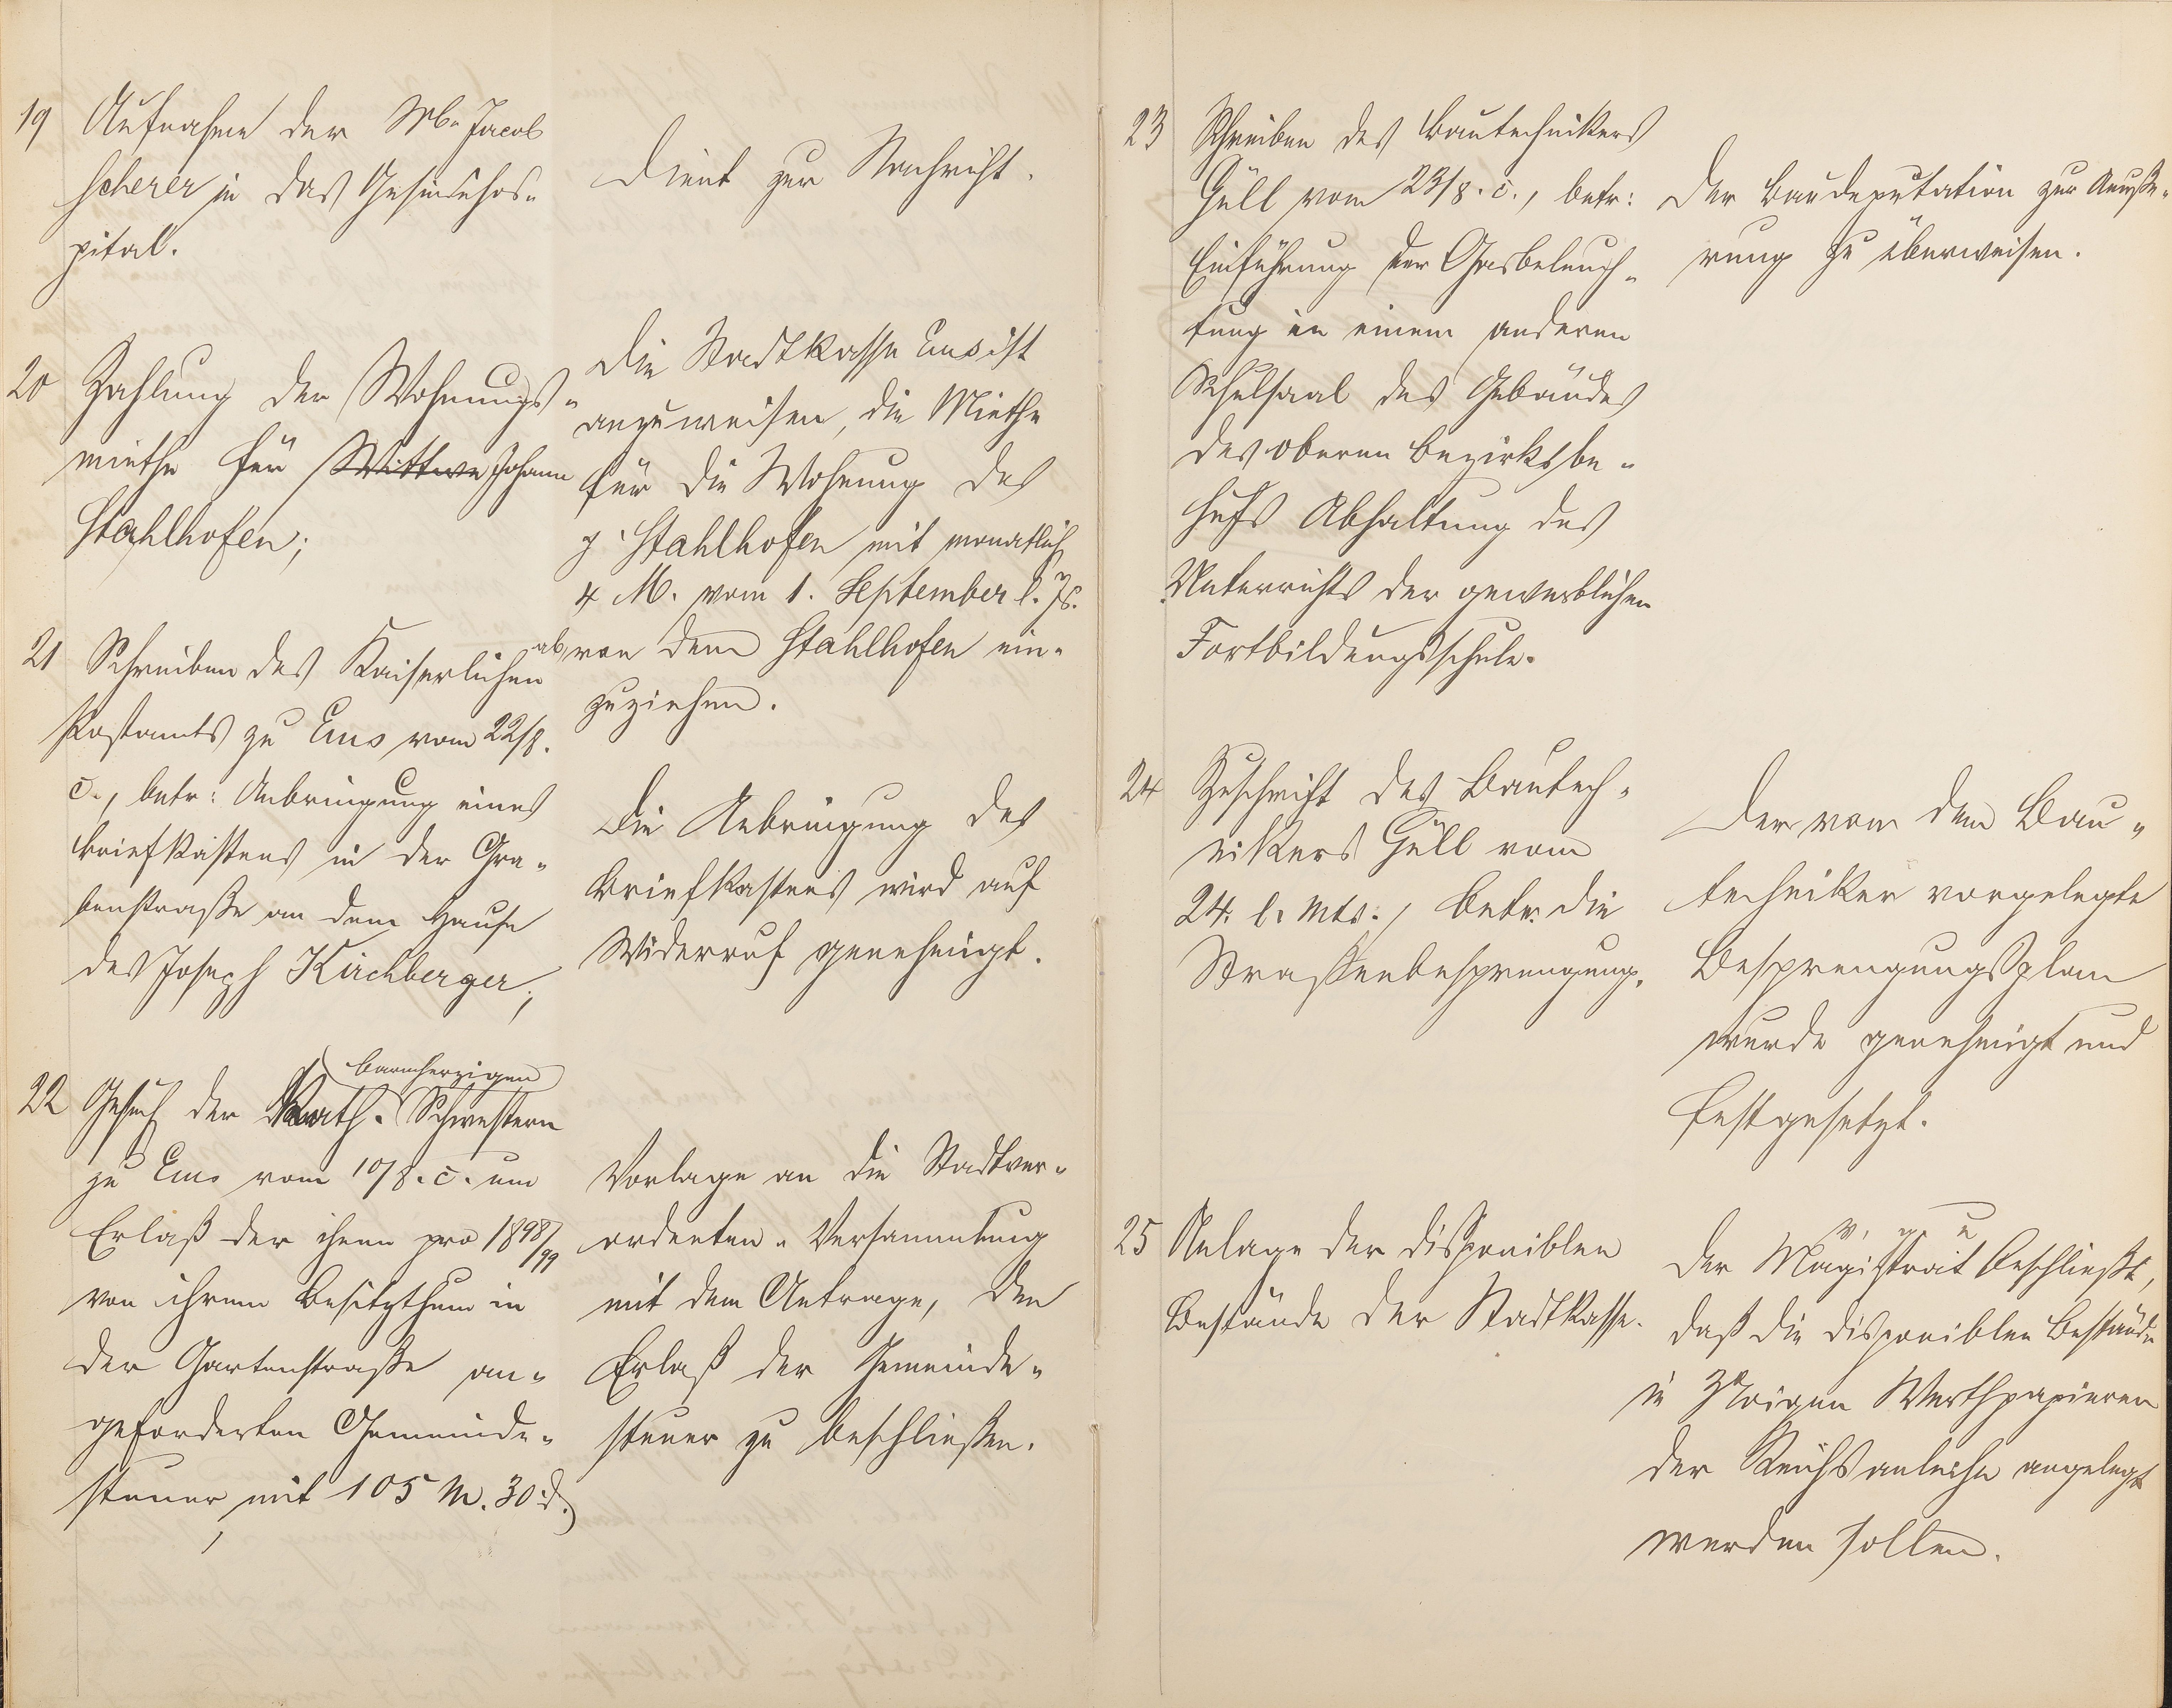 19 Aufnahme der Wb. Jacob
Scherer in das Gesindehos-
pital.
Dient zur Nachricht.
20 Zahlung der Wohnungs-
miethe für Wittwe Johann
Stahlhofen;
Die Stadtkasse Ems ist
anzuweisen, die Miethe
für die Wohnung des
p. Stahlhofen mit monatlich
4 M. vom 1. September l. Js.
ab, von dem Stahlhofen ein-
zuziehen.
21 Schreiben des Kaiserlichen
Postamts zu Ems vom 22/8.
c., betr: Anbringung eines
Briefkastens in der Gra-
benstraße an dem Hause
des Joseph Kirchberger;
Die Anbringung des
Briefkastens wird auf
Widerruf genehmigt.
22 Gesuch der Kath. barmherzigen Schwestern
zu Ems vom 10/8. c. um
Erlaß der ihnen pro 1898/99
von ihrem Besitzthum in
der Gartenstraße an-
geforderten Gemeinde-
steuer mit 105 M. 30 d.,
Vorlage an die Stadtver-
ordneten-Versammlung
mit dem Antrage, den
Erlaß der Gemeinde-
steuer zu beschließen.
23 Schreiben des Bautechnikers
Güll vom 23/8. c., betr:
Einführung der Gasbeleuch-
tung in einem anderen
Schulsaal des Gebäudes
des oberen Bezirks be-
hufs Abhaltung des
Unterrichts der gewerblichen
Fortbildungsschule.
Der Baudeputation zur Aeuße-
rung zu überweisen.
24 Zuschrift des Bautech-
nikers Güll vom
24. l. Mts., betr. die
Straßenbesprengung.
Der von dem Bau-
techniker vorgelegte
Besprengungsplan
wurde genehmigt und
festgesetzt.
25 Anlage der disponiblen
Bestände der Stadtkasse.
v. g. u.
Der Magistrat beschließt,
daß die disponiblen Bestände
in 3%igen Werthpapieren
der Reichsanleihe angelegt
werden sollen.